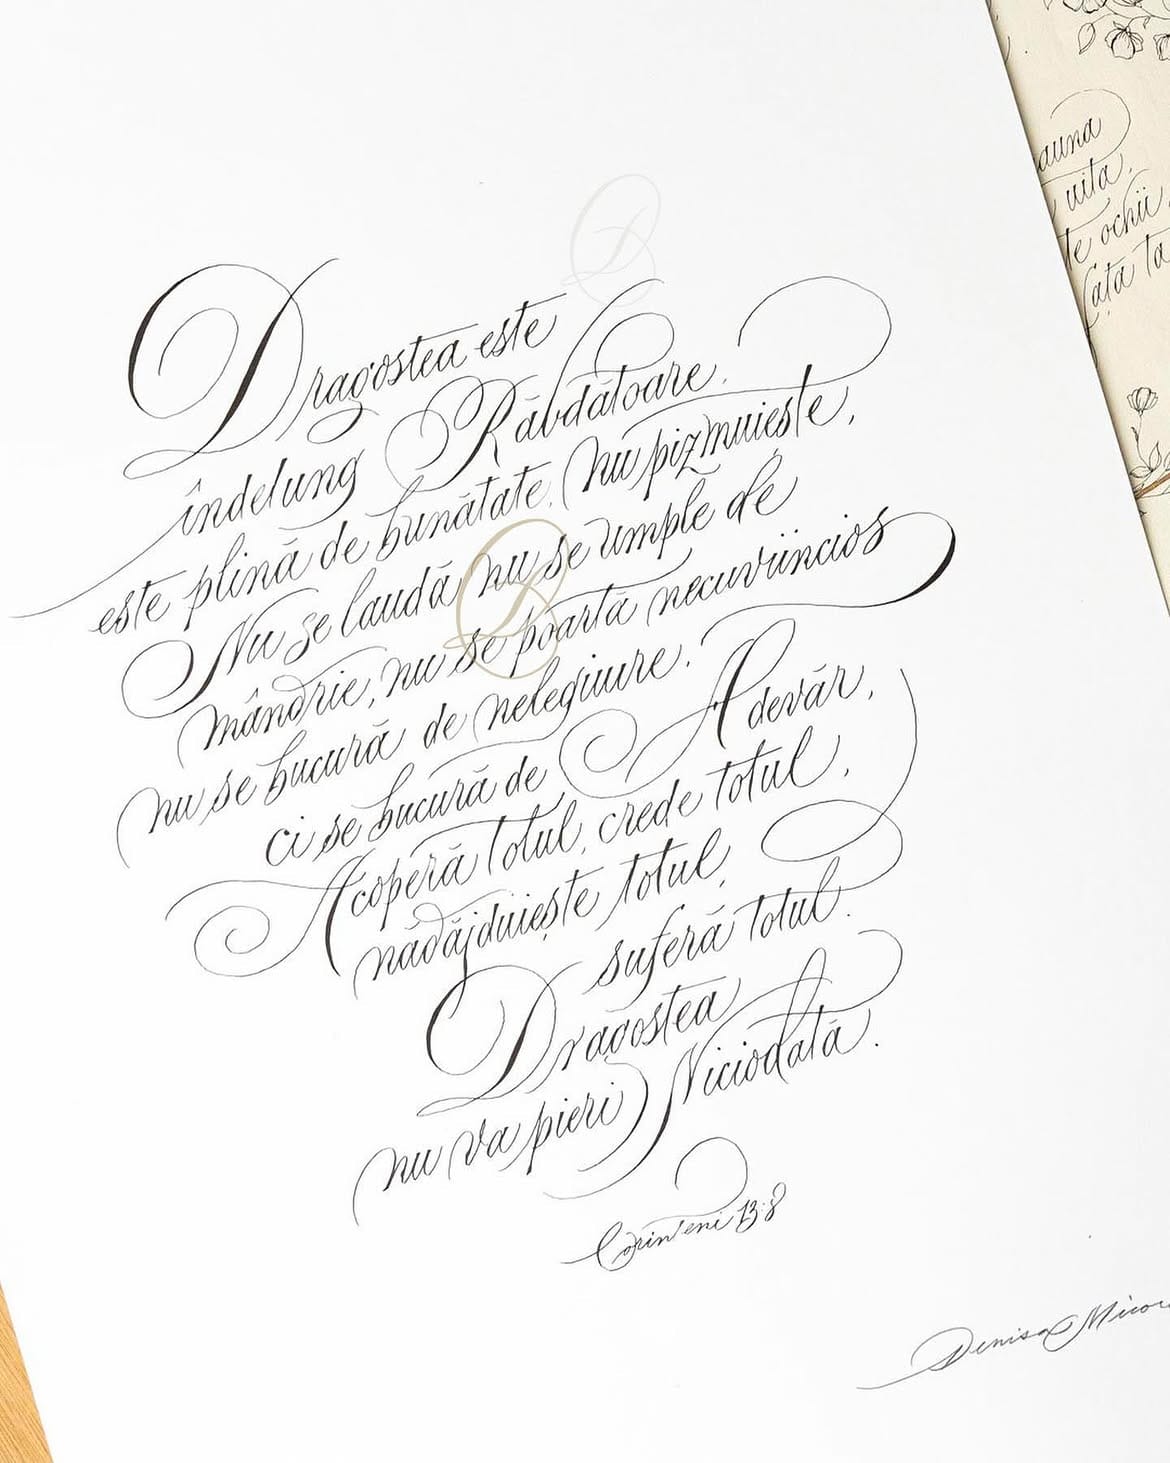 Dragostea este
îndelung Răbdătoare.
este plină de bunătate. nu pizmuiește,
Nu se laudă nu se umple de
mândrie, nu se poartă necuviincios
nu se bucură de nelegiuire.
ci se bucură de Adevăr,
Acoperă totul, crede totul,
nădăjduiește totul,
suferă totul.
Dragostea
nu va pieri Niciodată.
Corinteni 13:8
Denisa
uita,
te ochii
fața ta